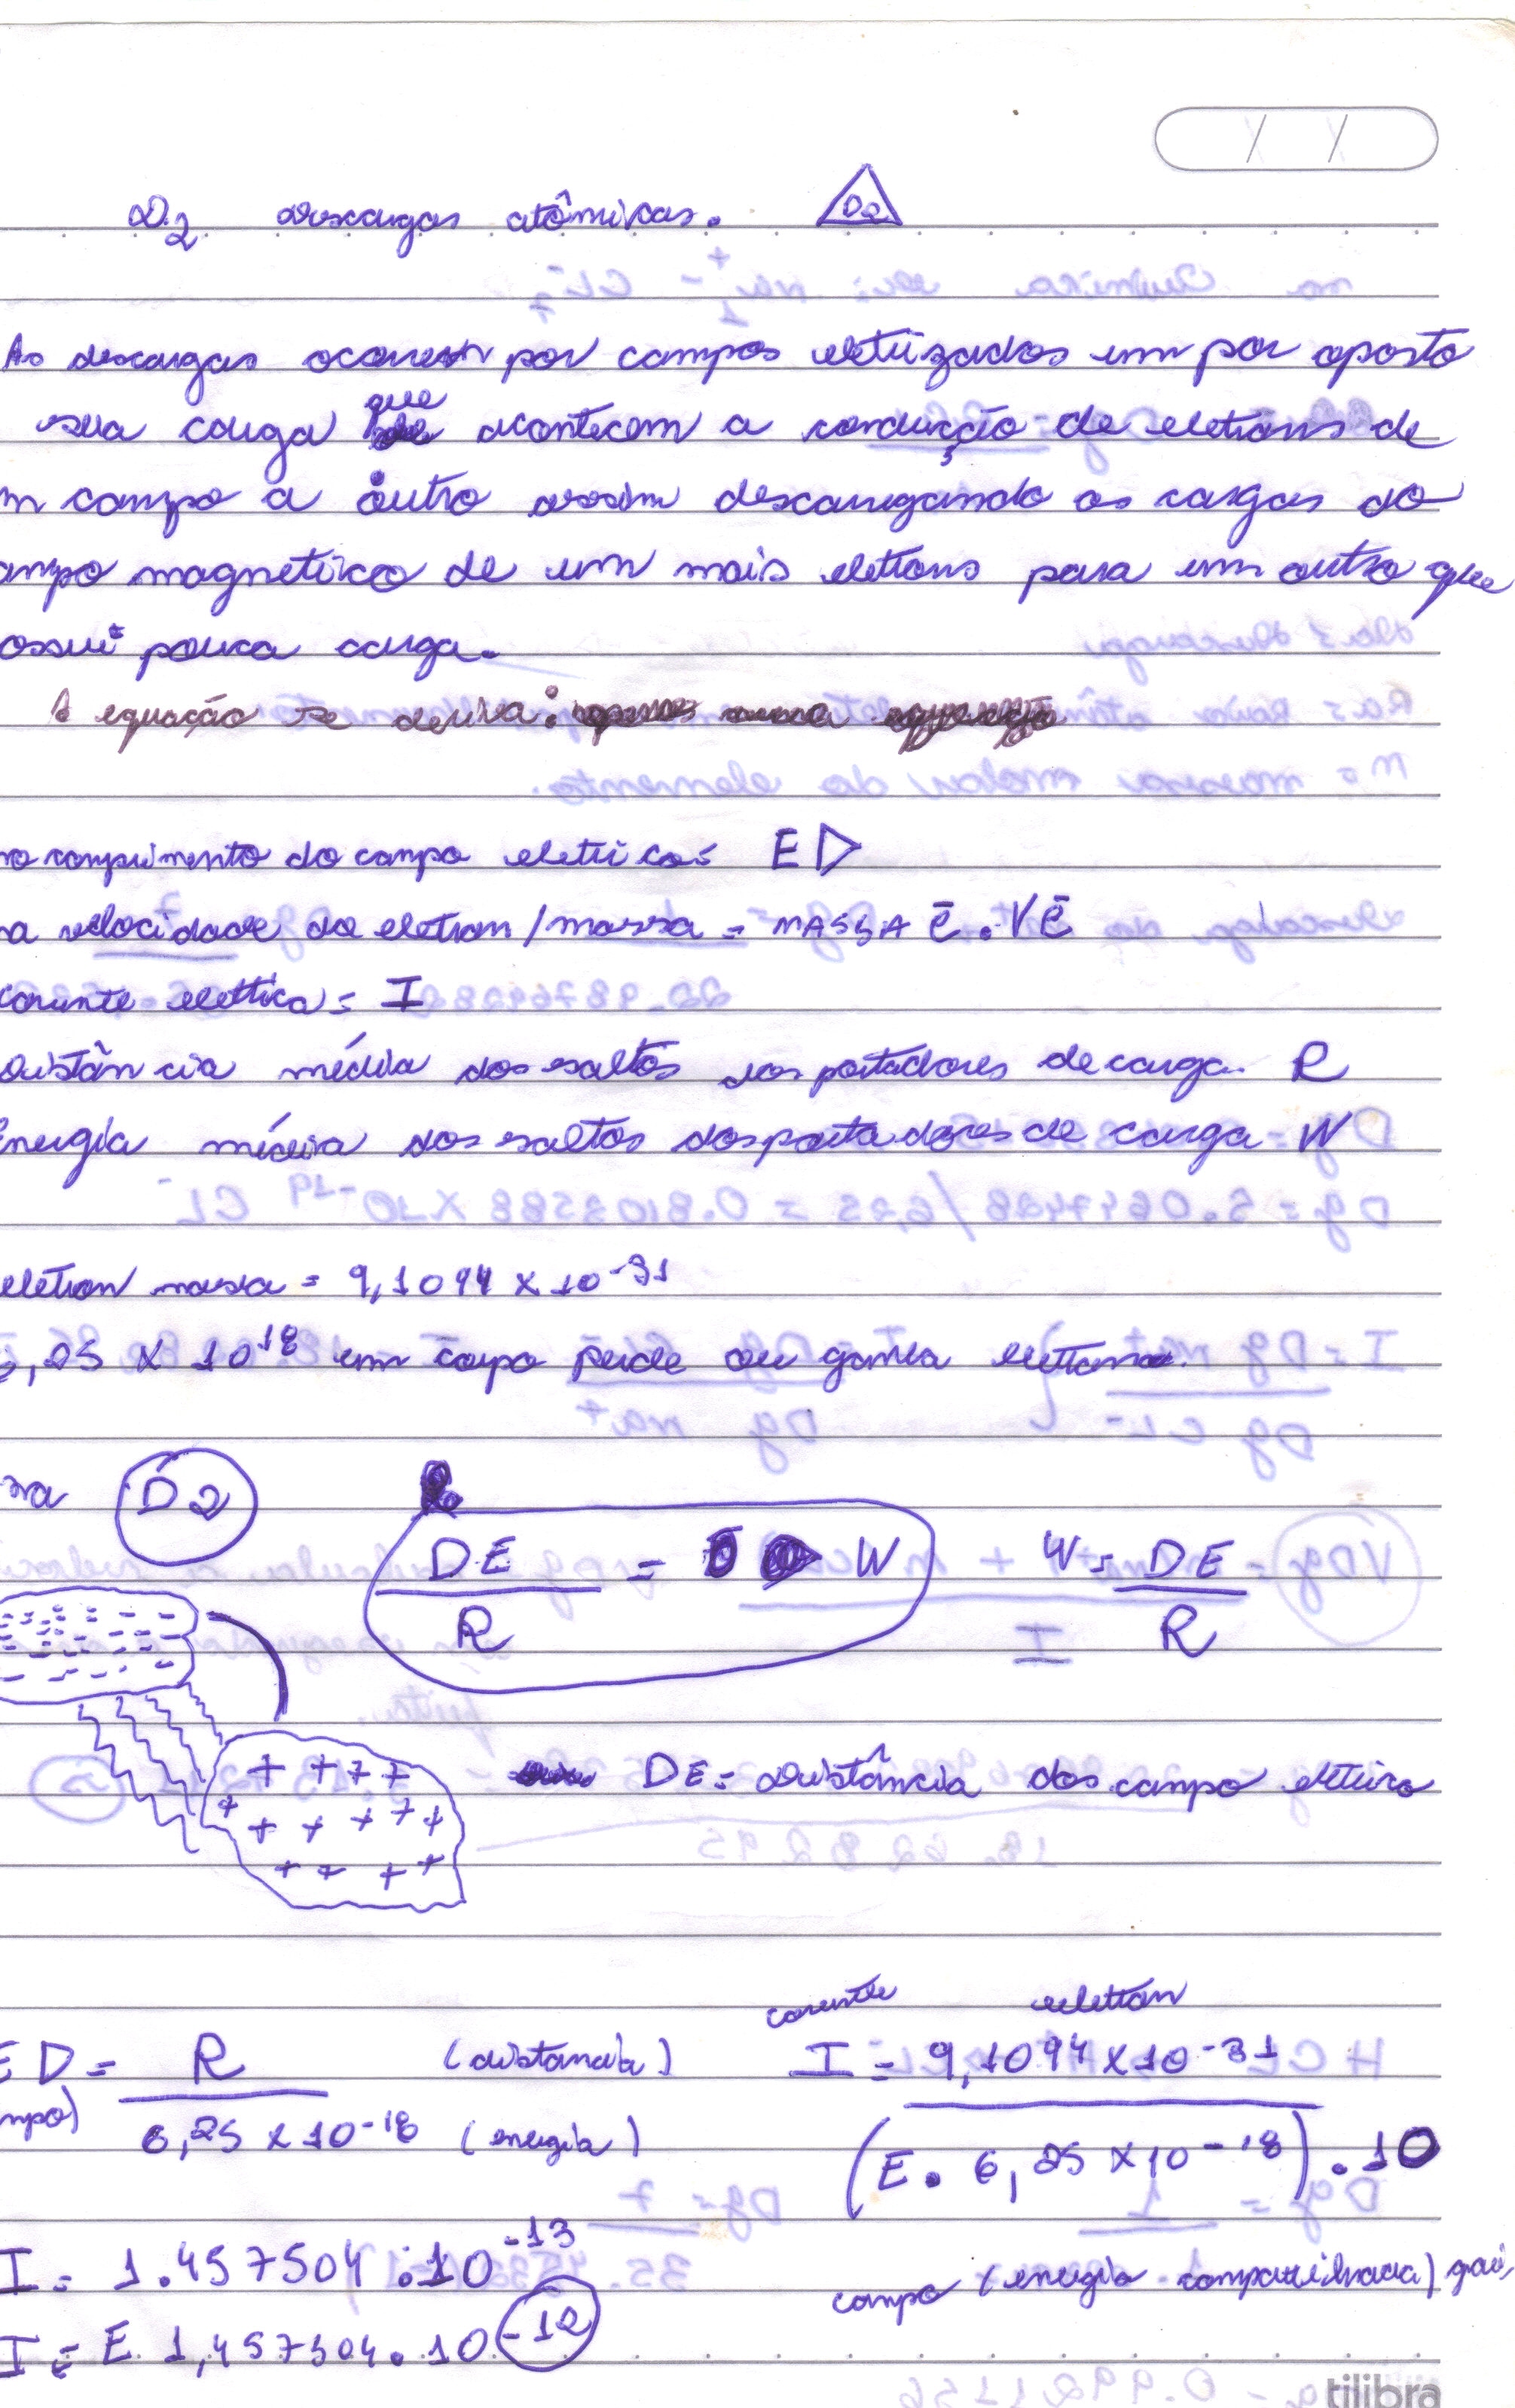 D.2 descargas atômicas. D2
As descargas ocorrem por campos eletrizados um por oposto
sua carga que acontecem a condução de eletrons de
m campo a outro assim descarregando as cargas do
ampo magnetico de um mais eletrons para um outro que
ossui pouca carga.
A equação se deriva:
no comprimento do campo eletrico: ED
a velocidade do eletron/massa = MASSA ē . Vē
corrente eletrica = I
Distância média dos saltos dos portadores de carga. R
Energia média dos saltos dos portadores de carga W
eletron massa = 9,1094 x 10-31
6,25 x 10 18 um corpo perde ou ganha eletrons.
D2
DE / R = W W = DE / R
- - - - -
+ + + +
+ + + + + +
+ + + +
DE = distância dos campo eletrico
corrente eletron
ED = R (distancia) I = 9,1094 x 10-31
mpo) 6,25 x 10-18 (energia) (E . 6,25 x 10-18) . 10
I = 1.457504 . 10-13
campo (energia compartilhada)
I = E 1,457504 . 10-12
tilibra